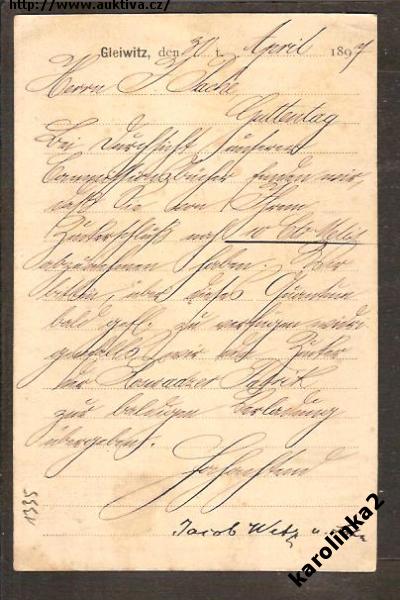 http://www.auktiva.cz/
Gleiwitz, den 30 t. April 1897
Herrn J. Sache
Guttentag
Bei Durchsicht unserer
Commissionsbücher finden wir,
daß Sie von Ihrem
Zuckerschluß noch 10 Ctr. Melis
abzunehmen haben. Wir
bitten, über dieses Quantum
bald gefl. zu verfügen widri
genfalls wir den Zucker
der Fabrik
zur baldigen Verladung
übergeben.
Hochachtend
Jacob
1335
karolinka2